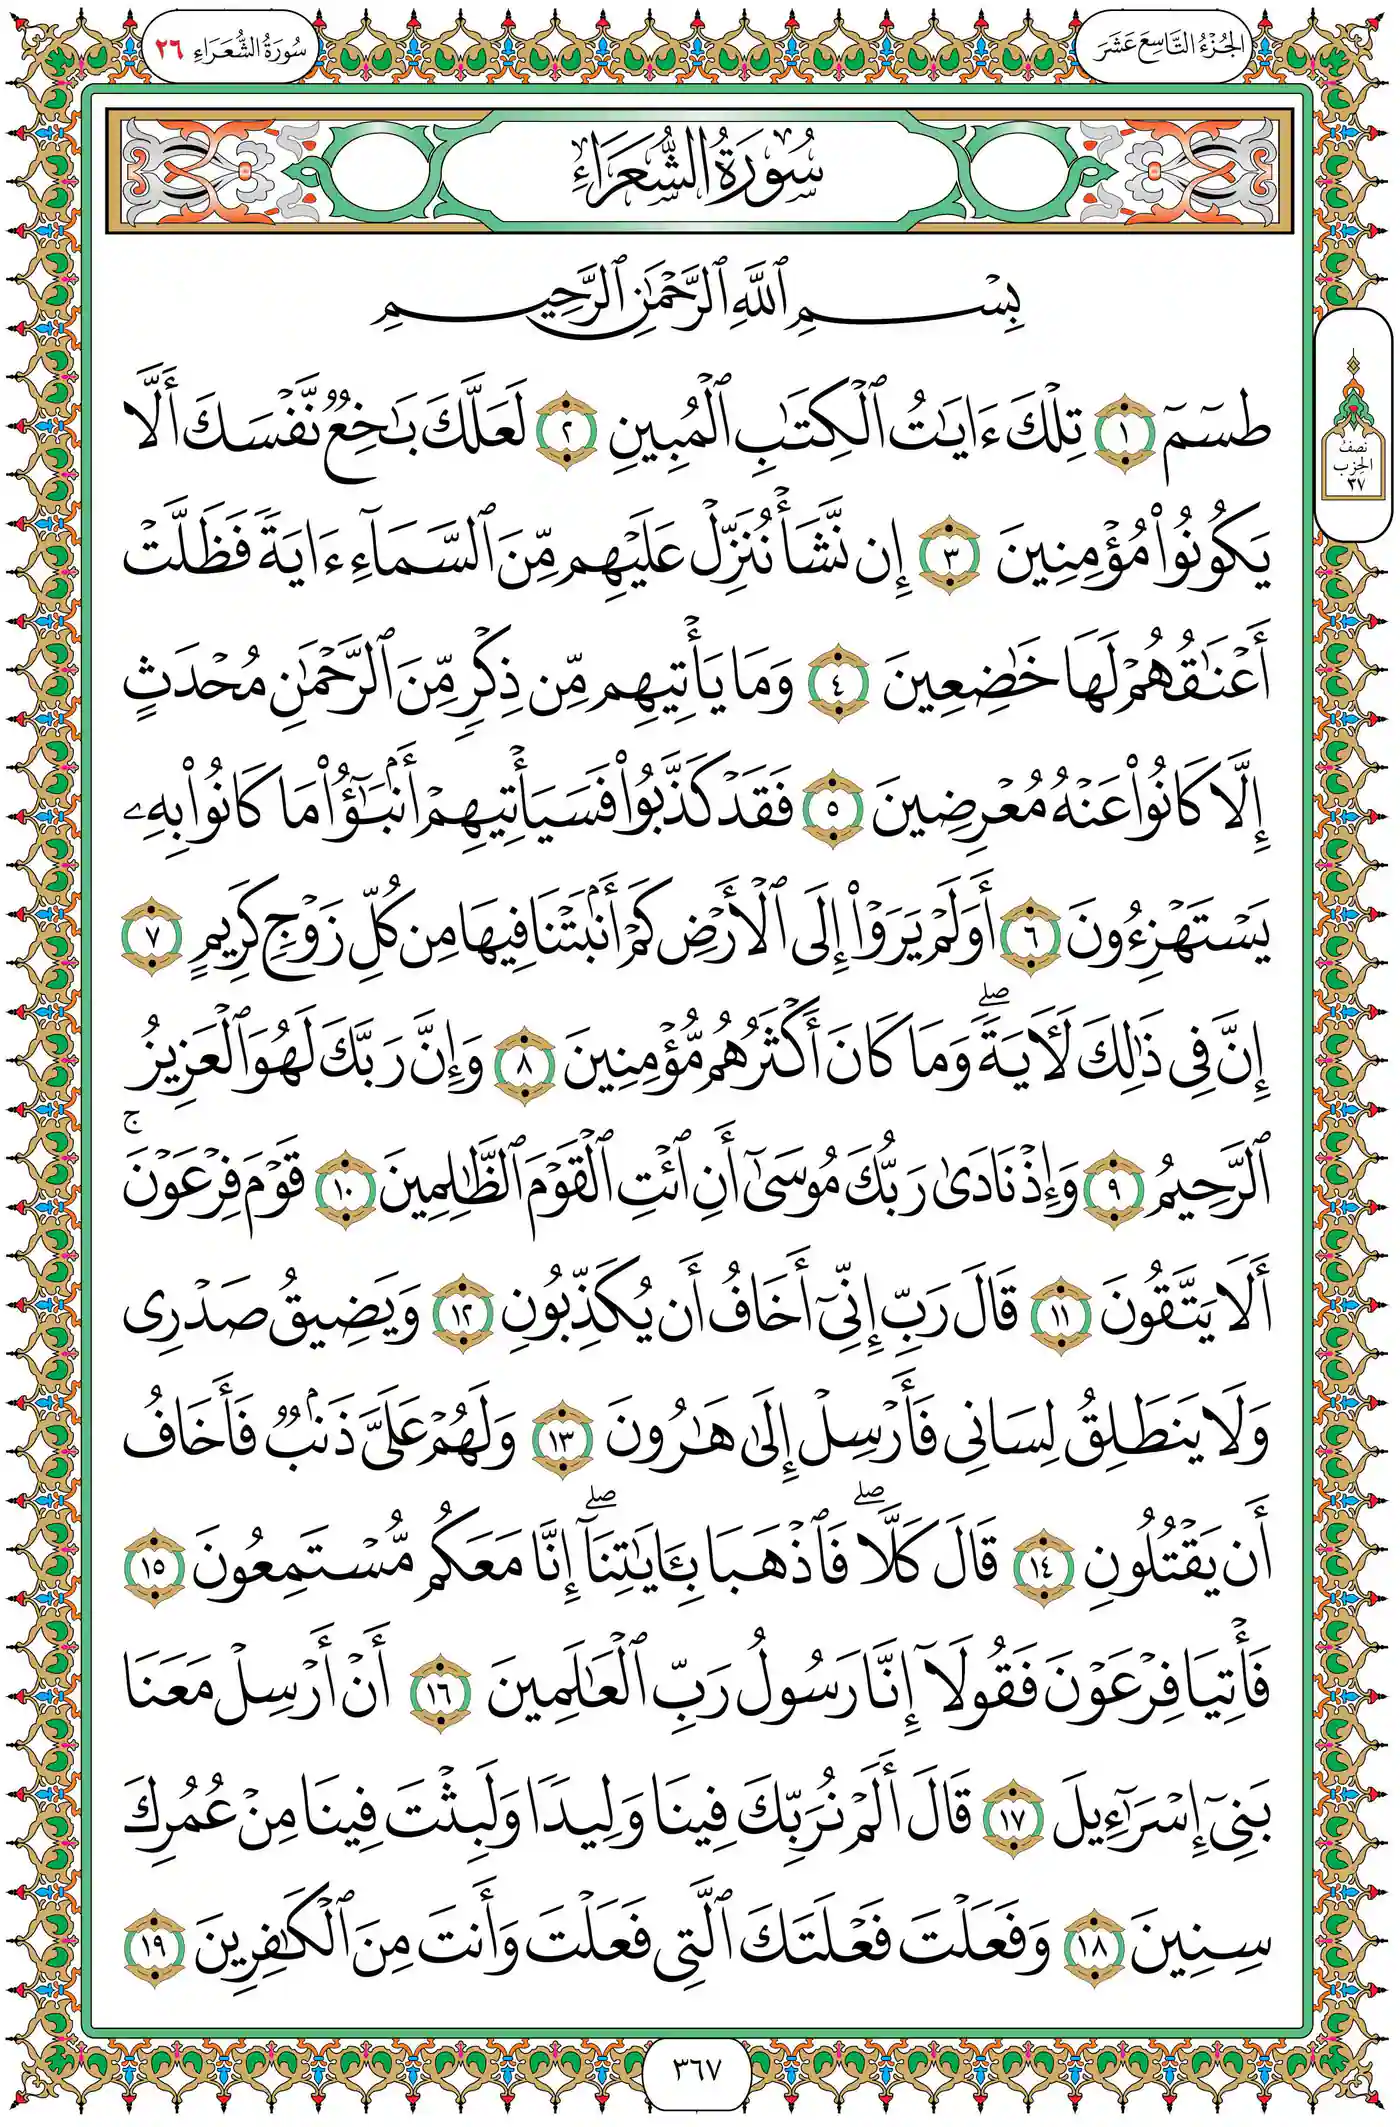 الجُزْءُ التَّاسِعَ عَشَرَ
سُورَةُ الشُّعَرَاءِ ٢٦
سُورَةُ الشُّعَرَاءِ
بِسْمِ ٱللَّهِ ٱلرَّحْمَٰنِ ٱلرَّحِيمِ
طسٓمٓ ١ تِلْكَ ءَايَٰتُ ٱلْكِتَٰبِ ٱلْمُبِينِ ٢ لَعَلَّكَ بَٰخِعٌ نَّفْسَكَ أَلَّا
يَكُونُوا۟ مُؤْمِنِينَ ٣ إِن نَّشَأْ نُنَزِّلْ عَلَيْهِم مِّنَ ٱلسَّمَآءِ ءَايَةً فَظَلَّتْ
أَعْنَٰقُهُمْ لَهَا خَٰضِعِينَ ٤ وَمَا يَأْتِيهِم مِّن ذِكْرٍ مِّنَ ٱلرَّحْمَٰنِ مُحْدَثٍ
إِلَّا كَانُوا۟ عَنْهُ مُعْرِضِينَ ٥ فَقَدْ كَذَّبُوا۟ فَسَيَأْتِيهِمْ أَنۢبَٰٓؤُا۟ مَا كَانُوا۟ بِهِۦ
يَسْتَهْزِءُونَ ٦ أَوَلَمْ يَرَوْا۟ إِلَى ٱلْأَرْضِ كَمْ أَنۢبَتْنَا فِيهَا مِن كُلِّ زَوْجٍ كَرِيمٍ ٧
إِنَّ فِى ذَٰلِكَ لَءَايَةً ۖ وَمَا كَانَ أَكْثَرُهُم مُّؤْمِنِينَ ٨ وَإِنَّ رَبَّكَ لَهُوَ ٱلْعَزِيزُ
ٱلرَّحِيمُ ٩ وَإِذْ نَادَىٰ رَبُّكَ مُوسَىٰٓ أَنِ ٱئْتِ ٱلْقَوْمَ ٱلظَّٰلِمِينَ ١٠ قَوْمَ فِرْعَوْنَ ۚ
أَلَا يَتَّقُونَ ١١ قَالَ رَبِّ إِنِّىٓ أَخَافُ أَن يُكَذِّبُونِ ١٢ وَيَضِيقُ صَدْرِى
وَلَا يَنطَلِقُ لِسَانِى فَأَرْسِلْ إِلَىٰ هَٰرُونَ ١٣ وَلَهُمْ عَلَىَّ ذَنۢبٌ فَأَخَافُ
أَن يَقْتُلُونِ ١٤ قَالَ كَلَّا ۖ فَٱذْهَبَا بِـَٔايَٰتِنَآ ۖ إِنَّا مَعَكُم مُّسْتَمِعُونَ ١٥
فَأْتِيَا فِرْعَوْنَ فَقُولَآ إِنَّا رَسُولُ رَبِّ ٱلْعَٰلَمِينَ ١٦ أَنْ أَرْسِلْ مَعَنَا
بَنِىٓ إِسْرَٰٓءِيلَ ١٧ قَالَ أَلَمْ نُرَبِّكَ فِينَا وَلِيدًا وَلَبِثْتَ فِينَا مِنْ عُمُرِكَ
سِنِينَ ١٨ وَفَعَلْتَ فَعْلَتَكَ ٱلَّتِى فَعَلْتَ وَأَنتَ مِنَ ٱلْكَٰفِرِينَ ١٩
نصف
الحزب
٣٧
٣٦٧